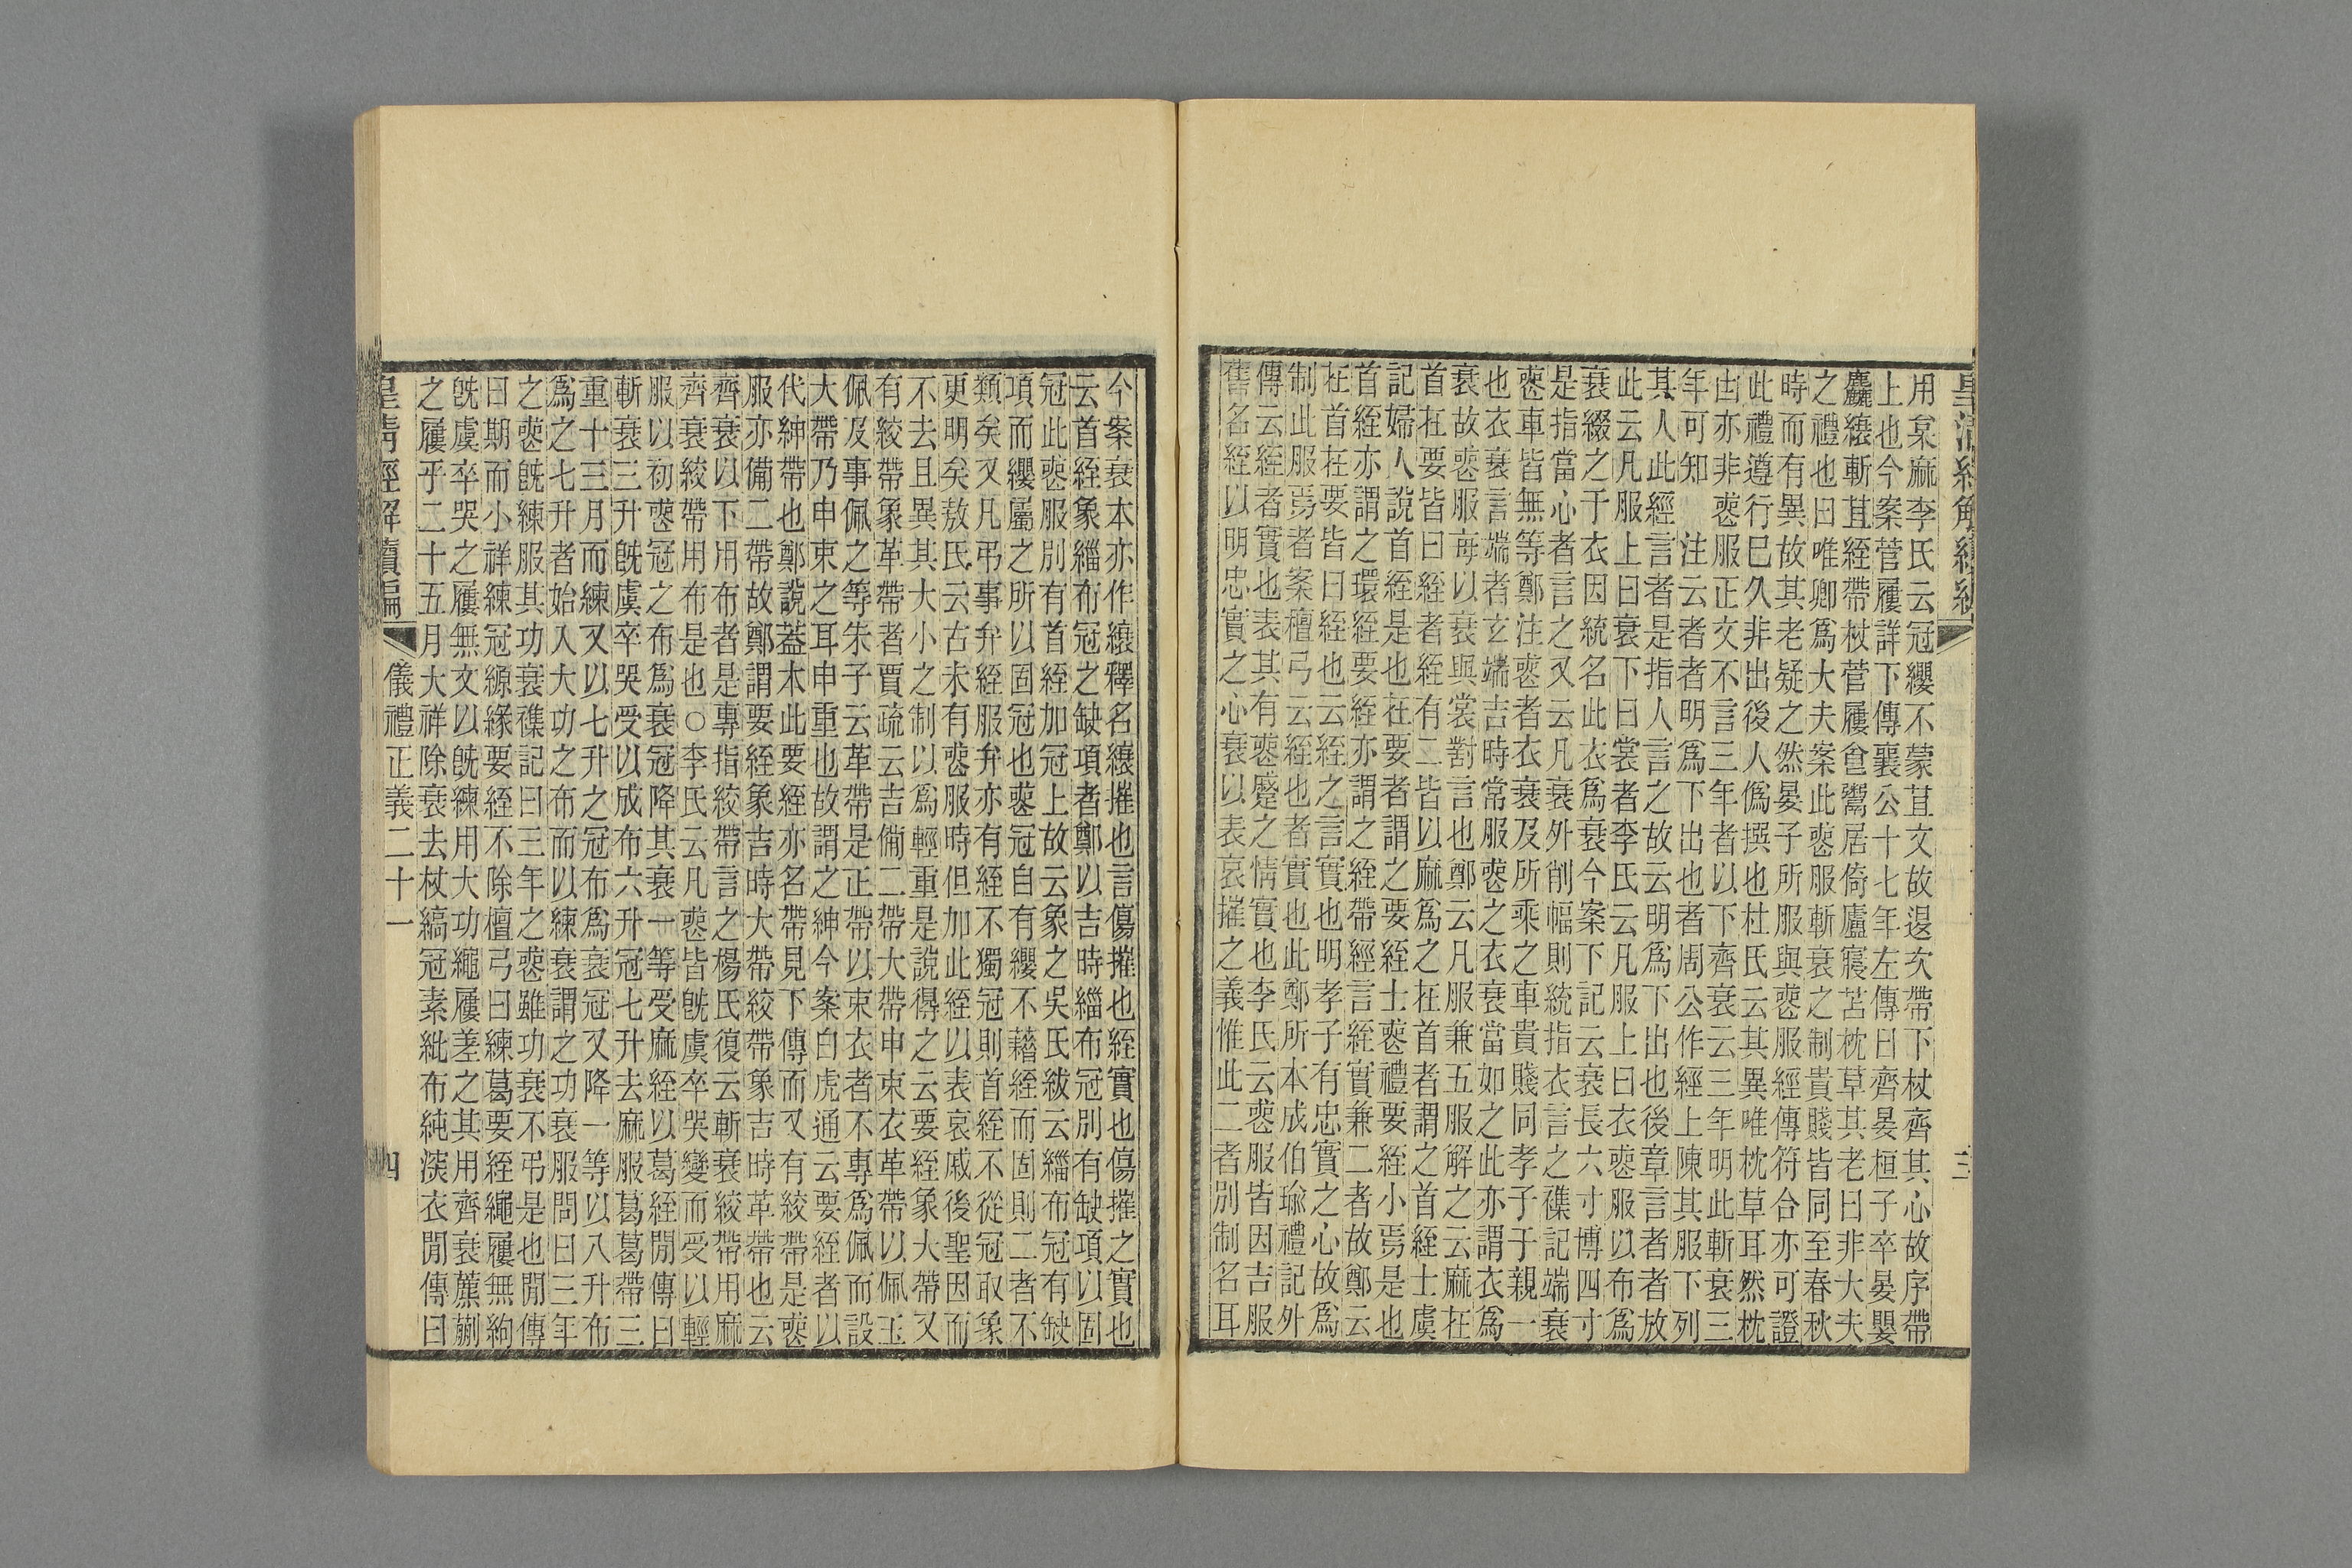 用枲麻李氏云冠纓不蒙苴文故退次帶下杖齊其心故序帶
上也今案菅屨詳下傳襄公十七年左傳曰齊晏桓子卒晏嬰
麤縗斬苴絰帶杖菅屨食鬻居倚廬寢苫枕草其老曰非大夫
之禮也曰唯卿爲大夫案此喪服斬衰之制貴賤皆同至春秋
時而有異故其老疑之然晏子所服與喪服經傳符合亦可證
此禮遵行已久非出後人僞撰也杜氏云其異唯枕草耳然枕
凷亦非喪服正文不言三年者以下齊衰云三年明此斬衰三
年可知　注云者者明爲下出也者周公作經上陳其服下列
其人此經言者是指人言之故云明爲下出也後章言者者放
此云凡服上曰衰下曰裳者李氏云凡服上曰衣喪服以布爲
衰綴之于衣因統名此衣爲衰今案下記云衰長六寸博四寸
是指當心者言之又云凡衰外削幅則統指衣言之襍記端衰
喪車皆無等鄭注喪者衣衰及所乘之車貴賤同孝子于親一
也衣衰言端者玄端吉時常服喪之衣衰當如之此亦謂衣爲
衰故喪服每以衰與裳對言也鄭云凡服兼五服解之云麻在
首在要皆曰絰者絰有二皆以麻爲之在首者謂之首絰士虞
記婦人說首絰是也在要者謂之要絰士喪禮要絰小焉是也
首絰亦謂之環絰要絰亦謂之絰帶經言絰實兼二者故鄭云
在首在要皆曰絰也云絰之言實也明孝子有忠實之心故爲
制此服焉者案檀弓云絰也者實也此鄭所本成伯瑜禮記外
傳云絰者實也表其有喪蹙之情實也李氏云喪服皆因吉服
舊名絰以明忠實之心衰以表哀摧之義惟此二者別制名耳
皇清經解續編
三
今案衰本亦作縗釋名縗摧也言傷摧也絰實也傷摧之實也
云首絰象緇布冠之缺項者鄭以吉時緇布冠別有缺項以固
冠此喪服別有首絰加冠上故云象之吳氏紱云緇布冠有缺
項而纓屬之所以固冠也喪冠自有纓不藉絰而固則二者不
類矣又凡弔事弁絰服弁亦有絰不獨冠則首絰不從冠取象
更明矣敖氏云古未有喪服時但加此絰以表哀戚後聖因而
不去且異其大小之制以爲輕重是說得之云要絰象大帶又
有絞帶象革帶者賈疏云吉備二帶大帶申束衣革帶以佩玉
佩及事佩之等朱子云革帶是正帶以束衣者不專爲佩而設
大帶乃申束之耳申重也故謂之紳今案白虎通云要絰者以
代紳帶也鄭說蓋本此要絰亦名帶見下傳而又有絞帶是喪
服亦備二帶故鄭謂要絰象吉時大帶絞帶象吉時革帶也云
齊衰以下用布者是專指絞帶言之楊氏復云斬衰絞帶用麻
齊衰絞帶用布是也○李氏云凡喪皆旣虞卒哭變而受以輕
服以初喪冠之布爲衰冠降其衰一等受麻絰以葛絰閒傳曰
斬衰三升旣虞卒哭受以成布六升冠七升去麻服葛葛帶三
重十三月而練又以七升之冠布爲衰冠又降一等以八升布
爲之七升者始入大功之布而以練衰謂之功衰服問曰三年
之喪旣練服其功衰襍記曰三年之喪雖功衰不弔是也閒傳
曰期而小祥練冠縓緣要絰不除檀弓曰練葛要絰繩屨無絇
旣虞卒哭之屨無文以旣練用大功繩屨差之其用齊衰薦蒯
之屨乎二十五月大祥除衰去杖縞冠素紕布純淡衣閒傳曰
皇清經解續編
儀禮正義二十一
四